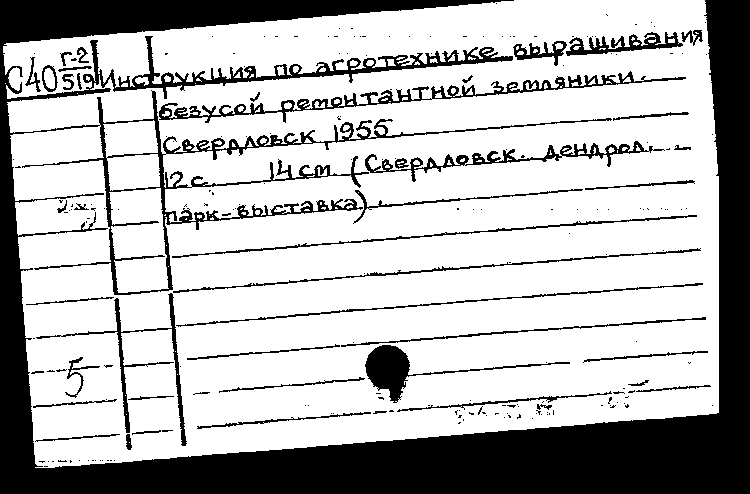 С40 Г-2/519 Инструкция по агротехнике выращивания
безусой ремонтантной земляники.
Свердловск, 1955.
12 с. 14 см (Свердловск. дендрол.
парк-выставка).
5